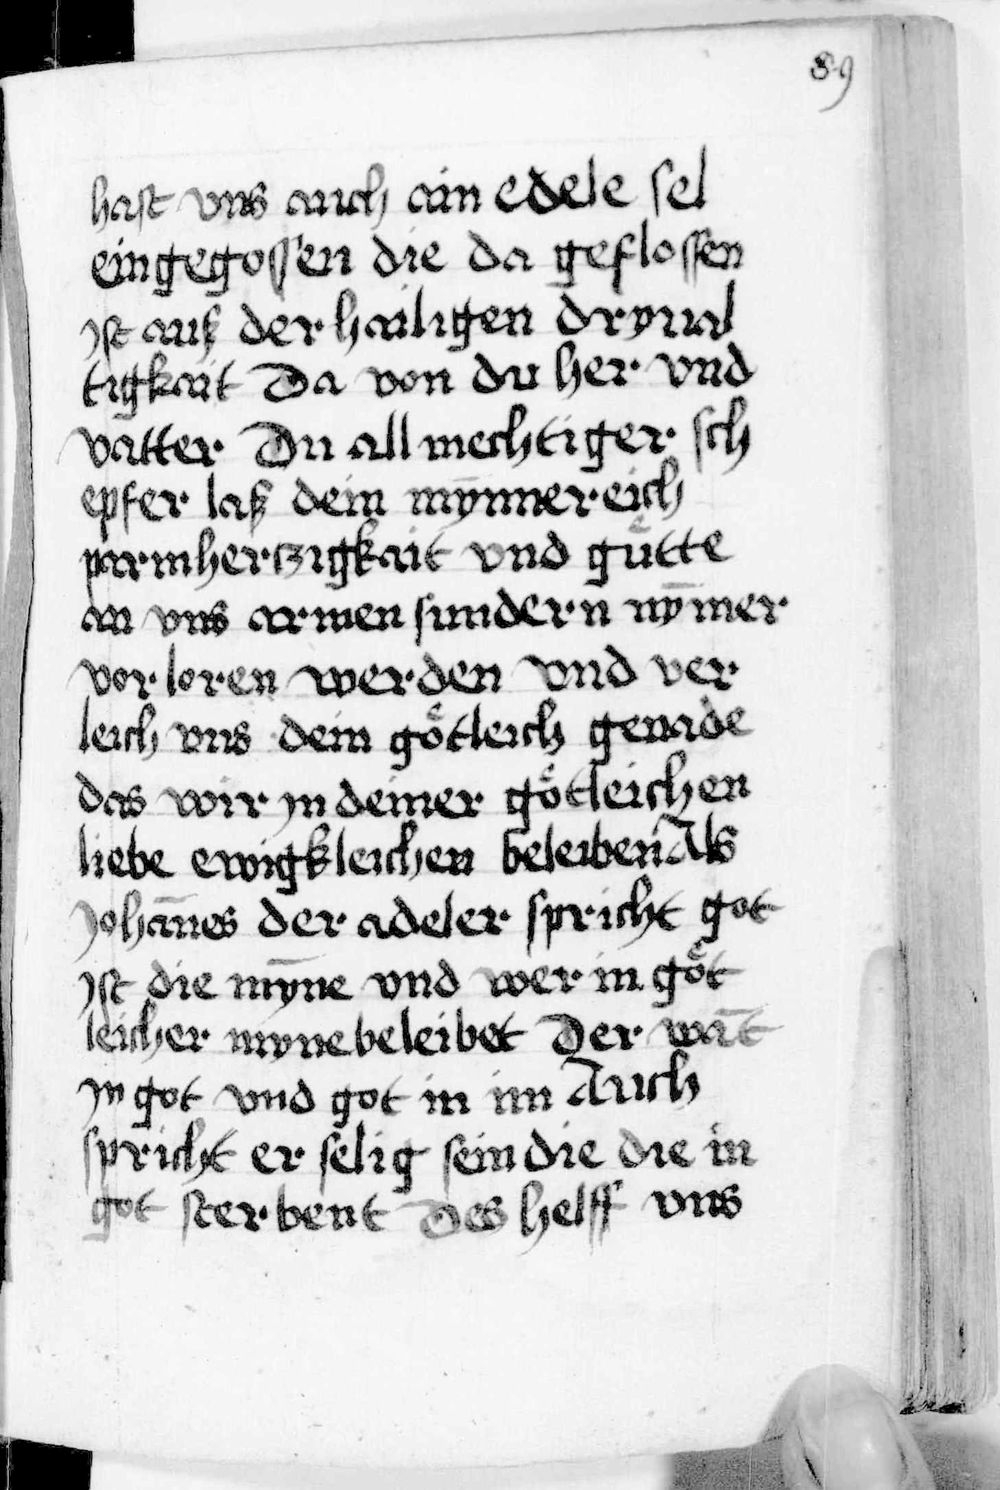 89
hast vns auch ain edele sel
eingegossen die da geflossen
jst auß der hailigen dryual
tigkait Da von du her vnd
vatter Du all mechtiger sch
epfer laß dein mȳnnereich
parmhertzigkait vnd guͤtte
an vns armen sundern nȳmer
vor loren werden vnd ver
leich vns dein goͤtleich genade
das wir jn deiner goͤtleichen
liebe ewigkleichen beleiben Als
Johān̄es der adeler spricht got
jst die mȳne vnd wer in goͤt
leicher myne beleibet Der wāt
jn got vnd got in im Auch
spricht er selig sein die die in
got sterbent Des helff vns